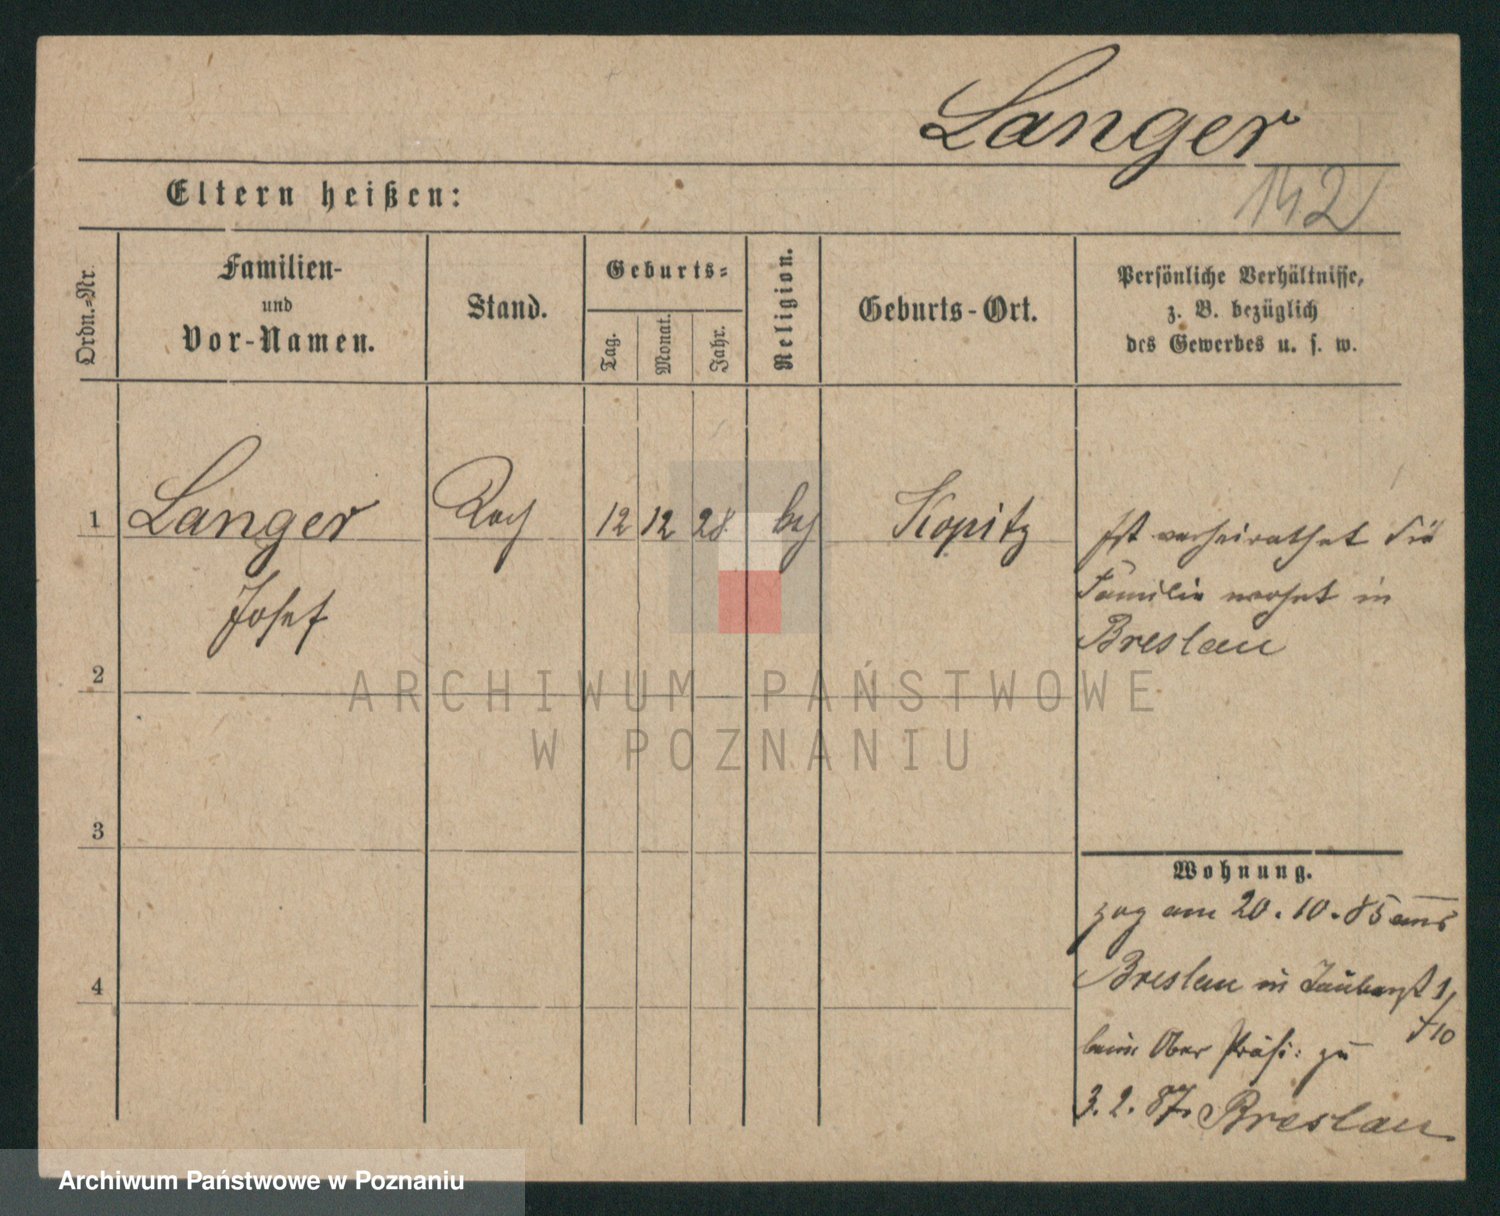 Langer
142
Eltern heißen:
Ordn.-Nr.
Familien-
und
Vor-Namen.
Stand.
Geburts-
Tag.
Monat.
Jahr.
Religion.
Geburts-Ort.
Persönliche Verhältnisse,
z. B. bezüglich
des Gewerbes u. s. w.
1 Langer Koch 12 12 28 Kopitz
Josef
Ist verheirathet Die
Familie wohnt in
Breslau
2
3
4
Wohnung.
zog am 20. 10. 85 aus
Breslau in 1/
10
beim Ober Präsi: zu
3. 2. 87. Breslau
ARCHIWUM PAŃSTWOWE
W POZNANIU
Archiwum Państwowe w Poznaniu